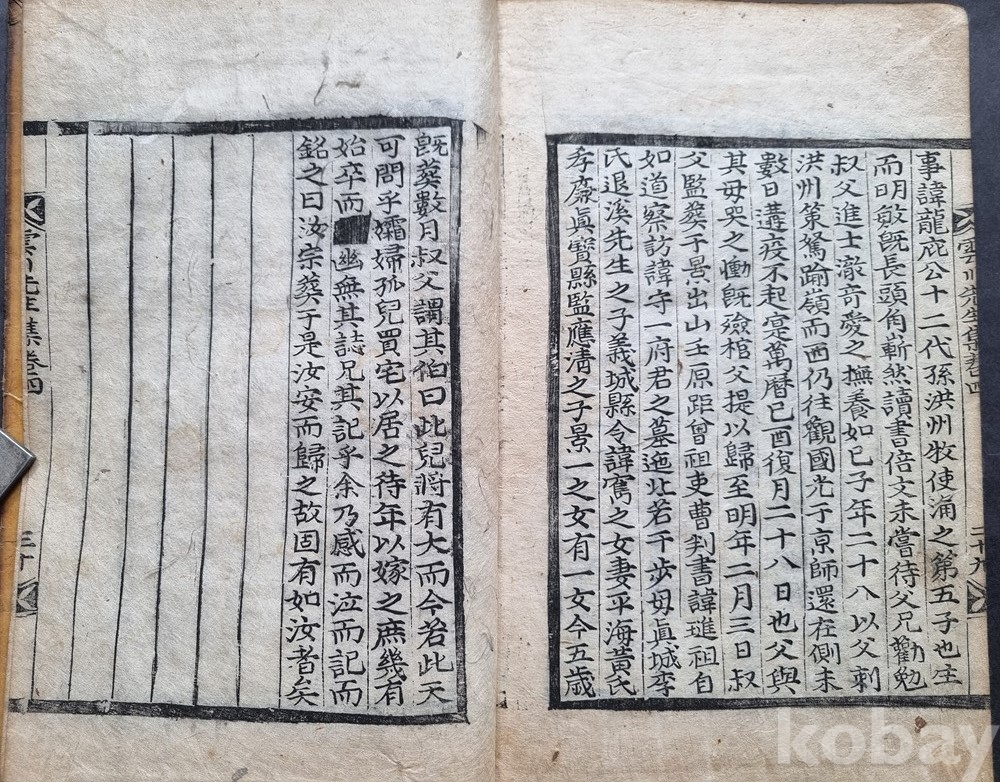 事諱龍庇公十二代孫洪州牧使涌之第五子也生
而明敏旣長頭角嶄然讀書倍文未嘗待父兄勸勉
叔父進士澈奇愛之撫養如已子年二十八以父刺
洪州第駑踰嶺而西仍往觀國光于京師還在側未
數日遘疫不起寔萬曆已酉復月二十八日也父與
其母哭之慟旣殮棺父提以歸至明年二月三日叔
父監葬于景出山壬原距曾祖吏曹判書諱璡祖自
如道察訪諱守一府君之墓迤北若干步母眞城李
氏退溪先生之子義城縣令諱寯之女妻平海黃氏
孝廉眞寶縣監應淸之子景一之女有一女今五歲
雲川先生集卷四
二十九
旣葬數月叔父謂其伯曰此兒將有大而今若此天
可問乎孀婦孤兒買宅以居之待年以嫁之庶幾有
始卒而 幽無其誌兄其記乎余乃感而泣而記而
銘之曰汝宗葬于是汝安而歸之故固有如汝者矣
雲川先生集卷四
三十
kobay